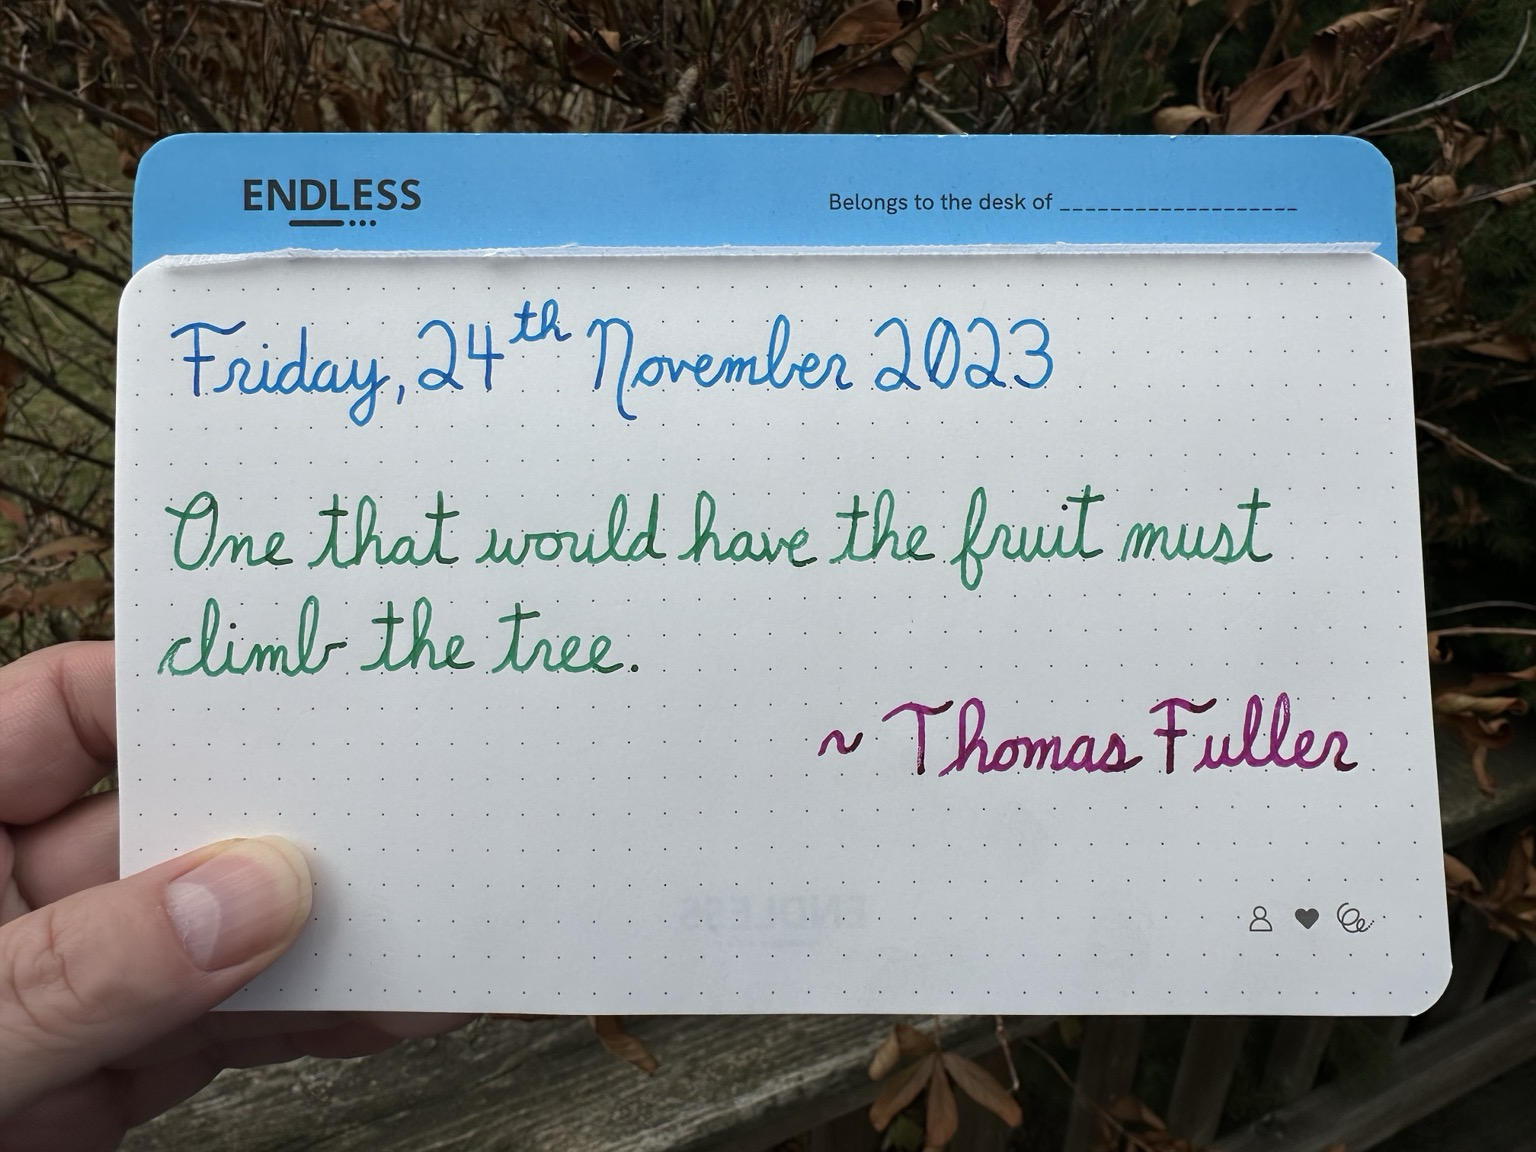 ENDLESS
Belongs to the desk of ___________________
Friday, 24th November 2023
One that would have the fruit must
climb the tree.
~ Thomas Fuller
ENDLESS